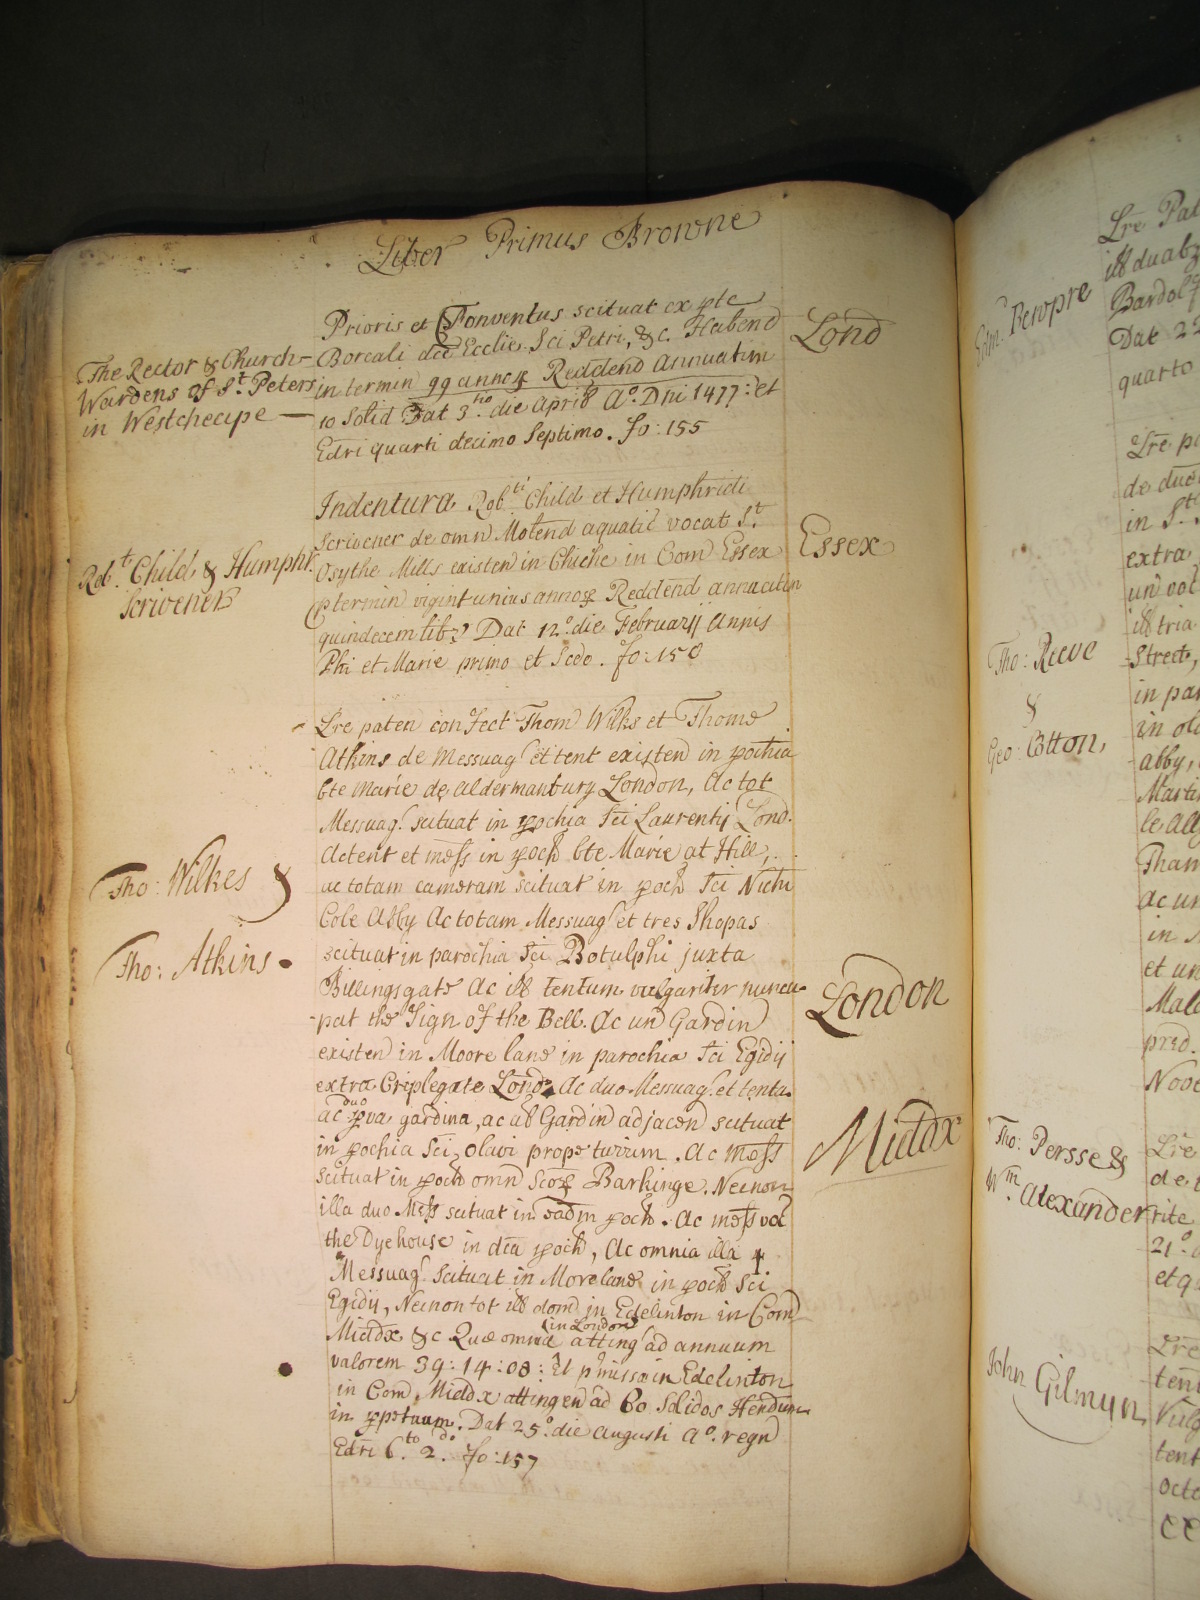 Liber Primus Browne
The Rector & Church-
Wardens of St. Peters
in Westcheape —
Prioris et Conventus scituat ex pte
Boreali dce Ecclie Sci Petri, &c. Habend
in termin 99 annoꝝ Reddend Annuatim
10 Solid Dat 3tio. die April Ao. Dni 1477: et
Edri quarti decimo Septimo. fo: 155
Lond
Robt. Child & Humphr.
Scrivener
Indentura Robti Child et Humphridi
Scrivener de omn Molend aquatic vocat St.
Osythe Mills existen in Chiche in Com Essex
p termin vigint unius annoꝝ Reddend annuatim
quindecem lib Dat 12o. die Februarij Annis
Phi et Marie primo et Scdo. fo: 158
Essex
Tho: Wilkes &
Tho: Atkins.
Lre paten confect Thom Wilks et Thome
Atkins de Messuag et tent existen in pochia
bte Marie de Aldermanbury London, Ac tot
Messuag. scituat in pochia Sci Laurentij Lond.
Ac tent et mess in poch bte Marie at Hill,
ac totam cameram scituat in poch Sci Nichi
Cole Abby Ac totam Messuag et tres Shopas
scituat in parochia Sci Botulphi juxta
Billingsgate Ac ill tentum vulgariter nuncu-
-pat the Sign of the Bell. Ac un Gardin
existen in Moore lane in parochia Sci Egidij
extra Criplegate Lond, Ac duo Messuag. et tenta.
ac duo pva gardina, ac al Gardin adjacen scituat
in pochia Sci Olavi prope turrim. Ac Mess
scituat in poch omn Scoꝝ Barkinge. Necnon
illa duo Mess scituat in eadm poch. Ac mess voc
the Dyehouse in dca poch, Ac omnia illa 4
Messuag Scituat in Morelane in poch Sci
Egidij, Necnon tot ill dom in Edelinton in Com
Middx &c Quæ omnia (in London) atting ad annuum
valorem 39: 14: 08: Et pmissa in Edelinton
in Com Middx attingen ad 60 Solidos Hendum
in ppetuum. Dat 25o. die Augusti Ao. regn
Edri 6to. 2do. fo: 157
London
Middx
Edm. Bewpre
Lre Pat
ill duab
Bardolf
Dat 22
quarto
Tho: Reeve
&
Geo: Cotton,
Lre pa
de duo
in St.
extra
un vol
ill tria
Street,
in par
in ol
abby,
Marti
le All
Tham
ac un
in
et un
Male
pred.
Nooe
Tho: Persse &
Wm. Alexander
Lre
de
rite
21o.
et q
John Gilmyn
Lre
ten
Vulg
tent
octo